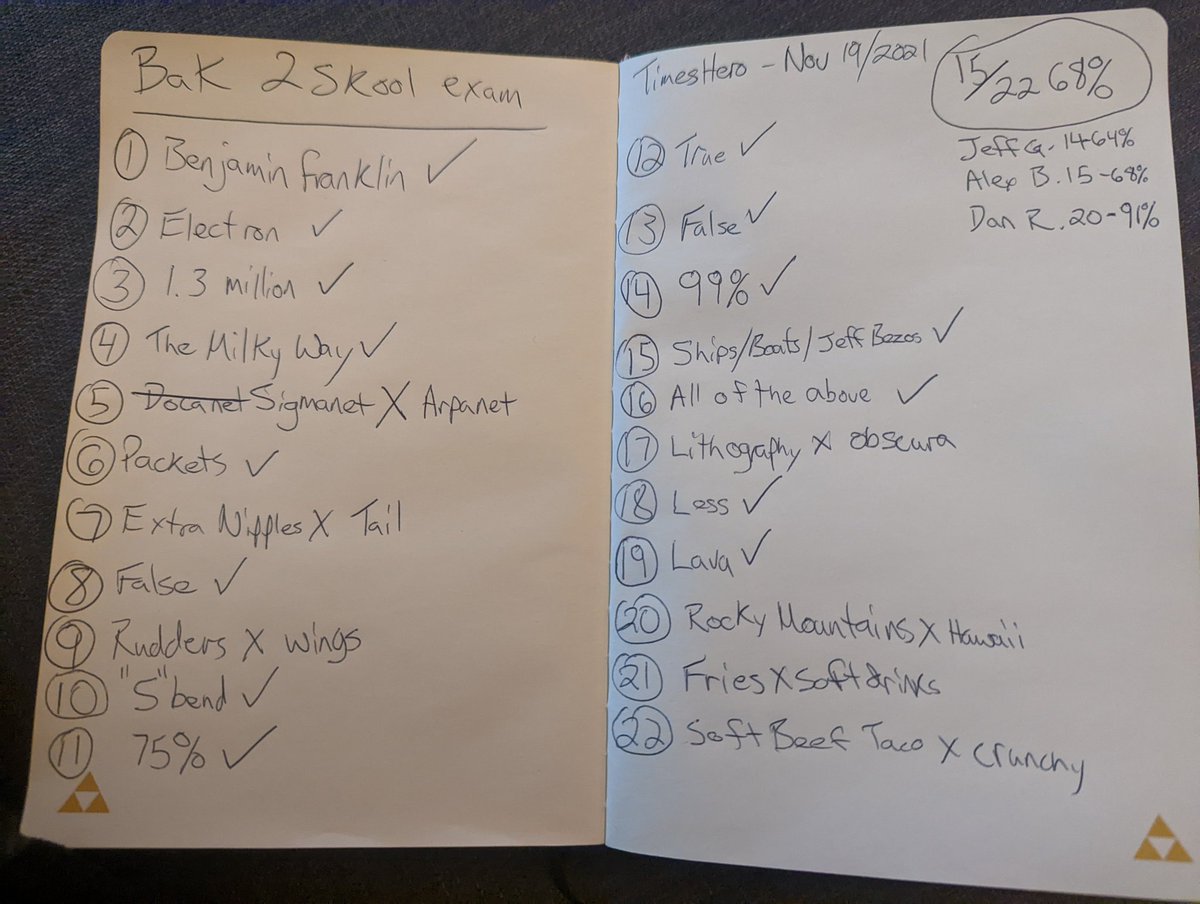 Bak 2 Skool exam
① Benjamin franklin ✓
② Electron ✓
③ 1.3 million ✓
④ The Milky Way ✓
⑤ Docanet Sigmanet X Arpanet
⑥ Packets ✓
⑦ Extra Nipples X Tail
⑧ False ✓
⑨ Rudders X wings
⑩ "S" bend ✓
⑪ 75% ✓
TimesHero - Nov 19/2021
15/22 68%
Jeff G. 14-64%
Alex B. 15-68%
Dan R. 20-91%
⑫ True ✓
⑬ False ✓
⑭ 99% ✓
⑮ Ships/Boats/Jeff Bezos ✓
⑯ All of the above ✓
⑰ Lithography X obscura
⑱ Less ✓
⑲ Lava ✓
⑳ Rocky Mountains X Hawaii
㉑ Fries X Soft drinks
㉒ Soft Beef Taco X crunchy